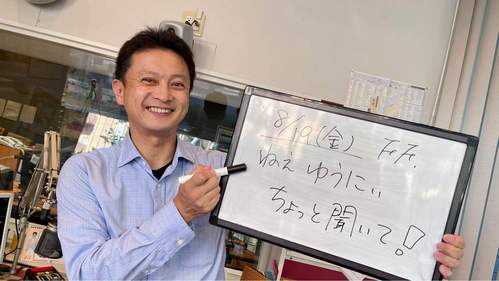 8/19(金) F.F.
ねぇ ゆうにぃ
ちょっと聞いて!